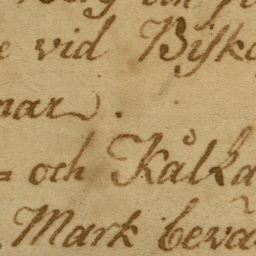 e vid Bisko
nar.
= och Kålka
Mark bevä